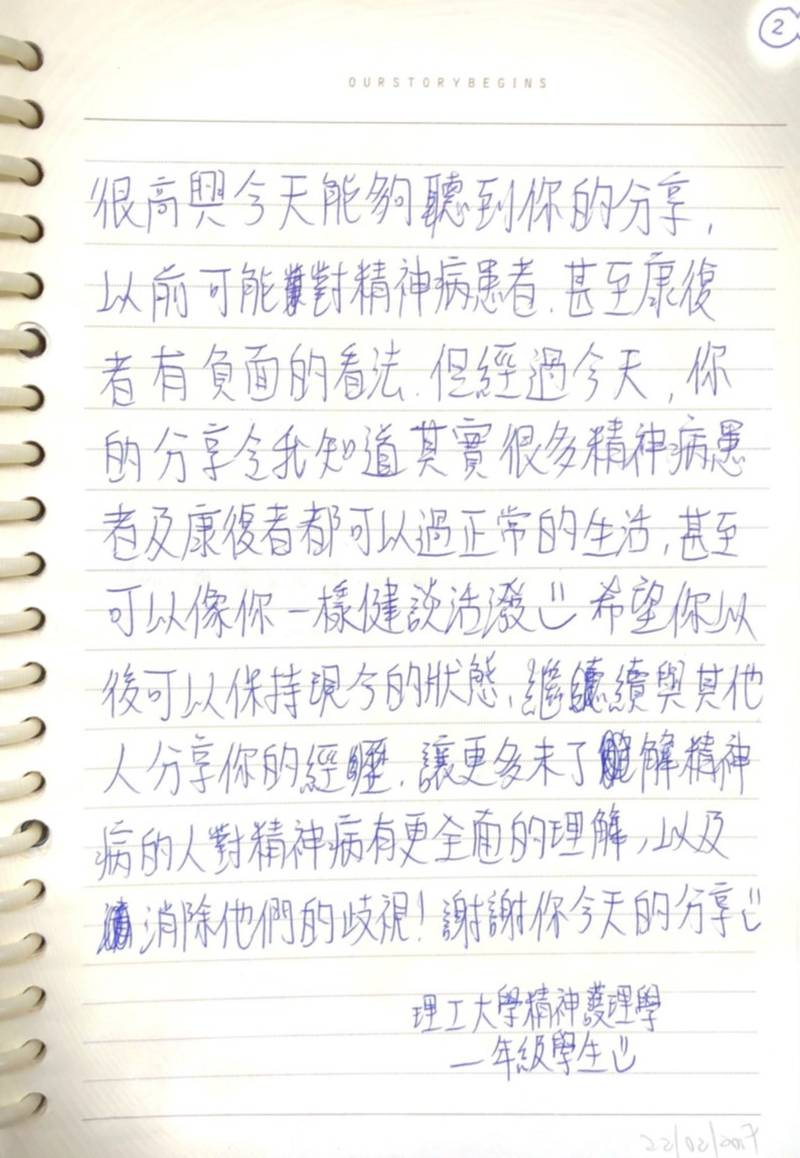 2
OURSTORYBEGINS
很高興今天能夠聽到你的分享,
以前可能對精神病患者、甚至康復
者有負面的看法. 但經過今天, 你
的分享令我知道其實很多精神病患
者及康復者都可以過正常的生活, 甚至
可以像你一樣健談活潑 希望你以
後可以保持現今的狀態, 繼續與其他
人分享你的經歷, 讓更多未了解精神
病的人對精神病有更全面的理解, 以及
消除他們的歧視! 謝謝你今天的分享
理工大學精神護理學
一年級學生
22/02/2017